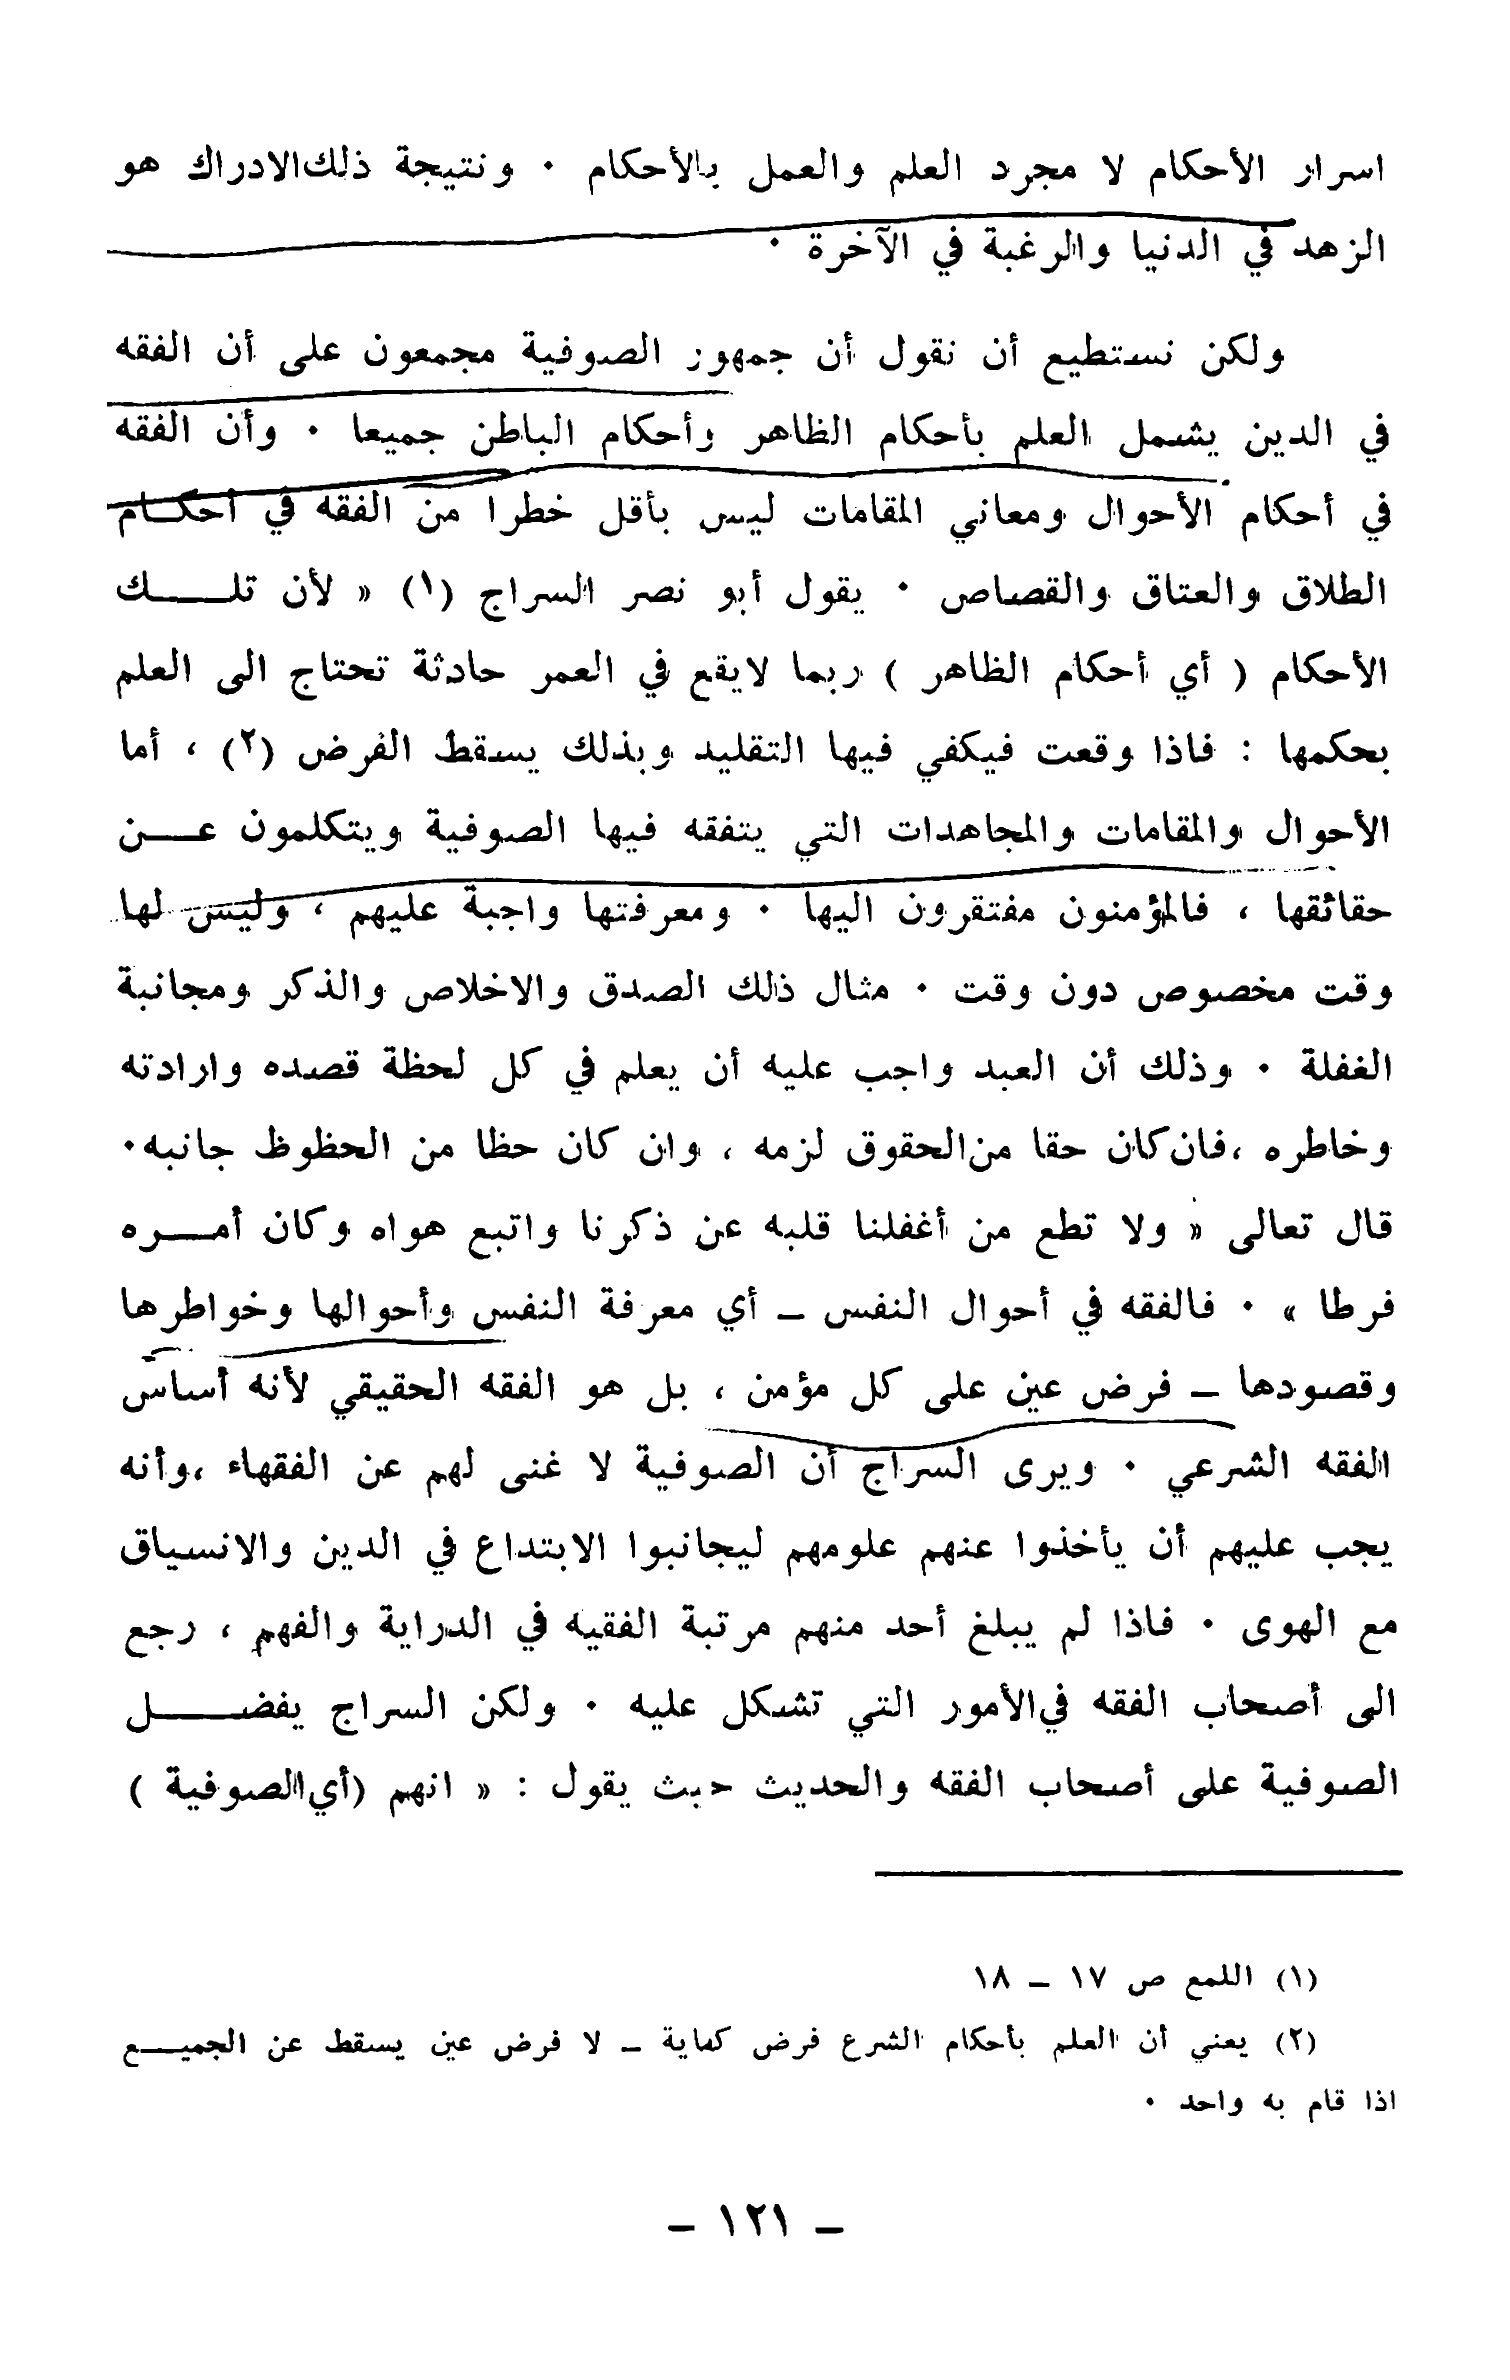 اسرار الأحكام لا مجرد العلم والعمل بالأحكام ٠ ونتيجة ذلك الادراك هو
الزهد في الدنيا والرغبة في الآخرة ٠
ولكن نستطيع أن نقول أن جمهور الصوفية مجمعون على أن الفقه
في الدين يشمل العلم بأحكام الظاهر وأحكام الباطن جميعا ٠ وأن الفقه
في أحكام الأحوال ومعاني المقامات ليس بأقل خطرا من الفقه في أحكام
الطلاق والعتاق والقصاص ٠ يقول أبو نصر السراج (١) « لأن تلك
الأحكام ( أي أحكام الظاهر ) ربما لايقع في العمر حادثة تحتاج الى العلم
بحكمها : فاذا وقعت فيكفي فيها التقليد وبذلك يسقط الفرض (٢) ، أما
الأحوال والمقامات والمجاهدات التي يتفقه فيها الصوفية ويتكلمون عن
حقائقها ، فالمؤمنون مفتقرون اليها ٠ ومعرفتها واجبة عليهم ، وليس لها
وقت مخصوص دون وقت ٠ مثال ذلك الصدق والاخلاص والذكر ومجانبة
الغفلة ٠ وذلك أن العبد واجب عليه أن يعلم في كل لحظة قصده وارادته
وخاطره ،فان كان حقا من الحقوق لزمه ، وان كان حظا من الحظوظ جانبه٠
قال تعالى « ولا تطع من أغفلنا قلبه عن ذكرنا واتبع هواه وكان أمره
فرطا » ٠ فالفقه في أحوال النفس – أي معرفة النفس وأحوالها وخواطرها
وقصودها – فرض عين على كل مؤمن ، بل هو الفقه الحقيقي لأنه أساس
الفقه الشرعي ٠ ويرى السراج أن الصوفية لا غنى لهم عن الفقهاء ،وأنه
يجب عليهم أن يأخذوا عنهم علومهم ليجانبوا الابتداع في الدين والانسياق
مع الهوى ٠ فاذا لم يبلغ أحد منهم مرتبة الفقيه في الدراية والفهم ، رجع
الى أصحاب الفقه في الأمور التي تشكل عليه ٠ ولكن السراج يفضل
الصوفية على أصحاب الفقه والحديث حيث يقول : « انهم (أي الصوفية )
(١) اللمع ص ١٧ – ١٨
(٢) يعني أن العلم بأحكام الشرع فرض كفاية – لا فرض عين يسقط عن الجميع
اذا قام به واحد ٠
– ١٢١ –